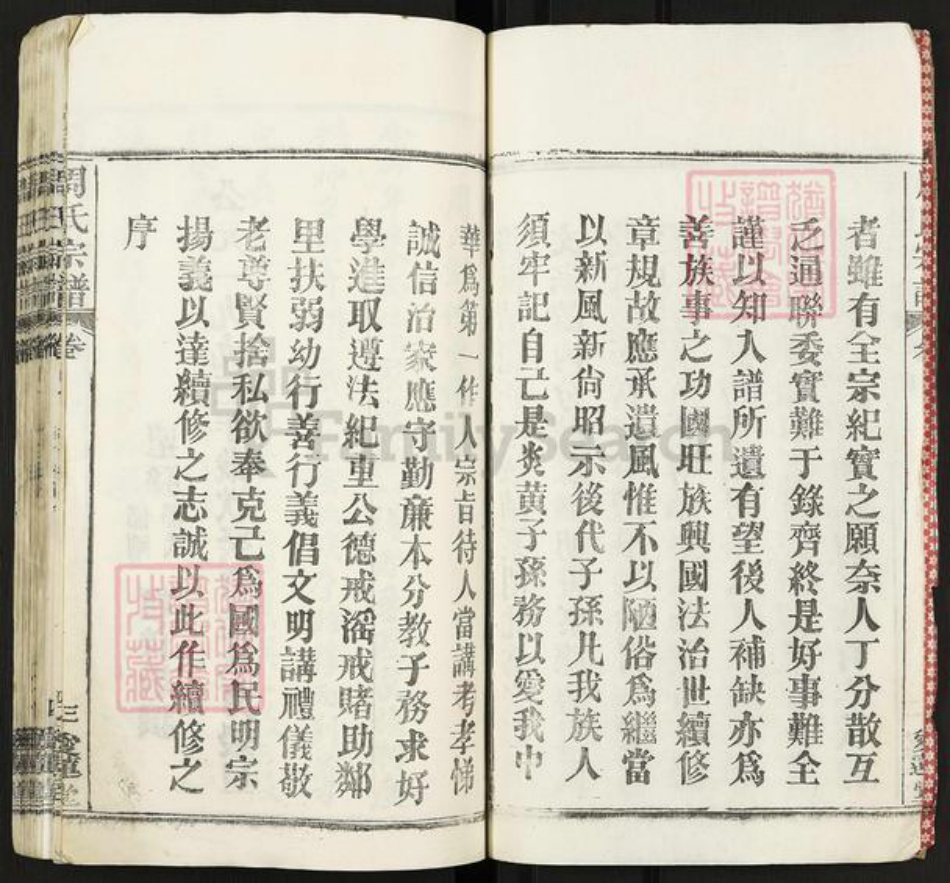 者雖有全宗紀實之願奈人丁分散互
乏通聯委實難于錄齊終是好事難全
謹以知入譜所遺有望後人補缺亦爲
善族事之功國旺族興國法治世續修
章規故應承遺風惟不以陋俗爲繼當
以新風新尙昭示後代子孫凡我族人
須牢記自己是炎黃子孫務以愛我中
華爲第一作人宗旨待人當講考孝悌
誠信治家應守勤廉本分教子務求好
學進取遵法紀重公德戒滛戒賭助鄰
里扶弱幼行善行義倡文明講禮儀敬
老尊賢捨私欲奉克己爲國爲民明宗
揚義以達續修之志誠以此作續修之
序
周氏宗譜
卷
三
愛蓮堂
FamilySearch